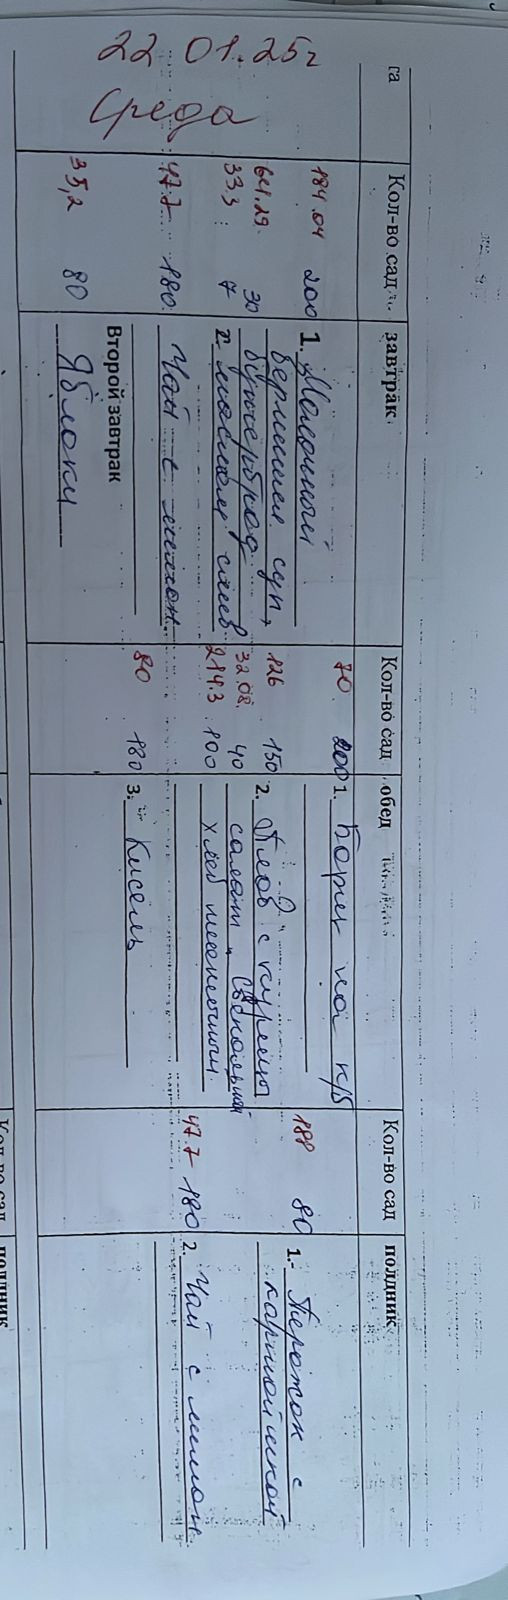 га
22 01.25г
Среда
Кол-во сад
184.04 200
64.29 30
33,3 7
47.7 180
35,2 80
завтрак
1. Молочный
вермишел суп,
бутерброд
2. маслом слив
Чай с лимон.
Второй завтрак
Яблоки
Кол-во сад
70. 200
126 150
32.08. 40
214.3 100
80 180
обед
1. Борщ на к/б
2. Плов с курицы
салат свекольный
хлеб пшеничный
3. Кисель
Кол-во сад
188 80
47.7 180
полдник
1.- Пирожок с
картошкой
2. Чай с лимон
Кол-во сад
полдник